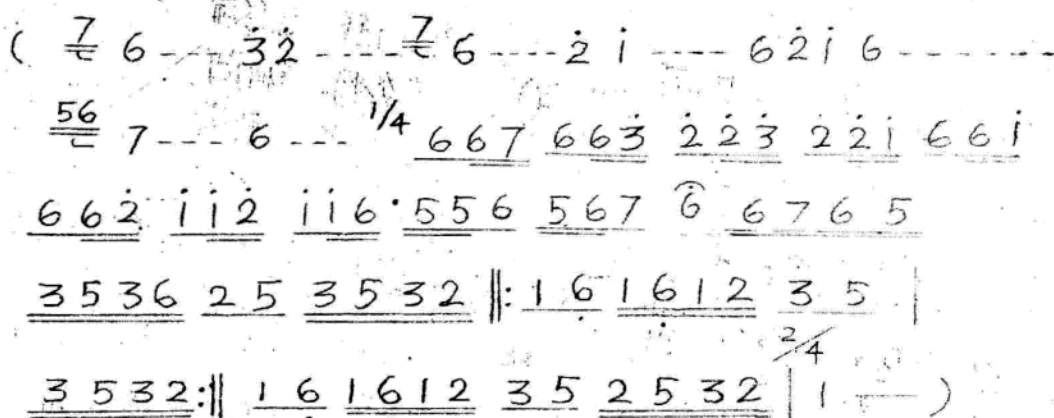 ( 7 6 --- 3̇ 2̇ ----- 7 6 ---- 2̇ 1̇ ---- 6 2̇ 1̇ 6 -------
56 7 --- 6 --- 1/4 6 6 7 6 6 3̇ 2̇ 2̇ 3̇ 2̇ 2̇ 1̇ 6 6 1̇
6 6 2̇ 1̇ 1̇ 2̇ 1̇ 1̇ 6 · 5 5 6 5 6 7 6 6 7 6 5
3 5 3 6 2 5 3 5 3 2 ‖: 1 6̣ 1 6̣ 1 2 3 5 |
3 5 3 2 :‖ 1 6̣ 1 6 1 2 3 5 2/4 2 5 3 2 | 1 — )